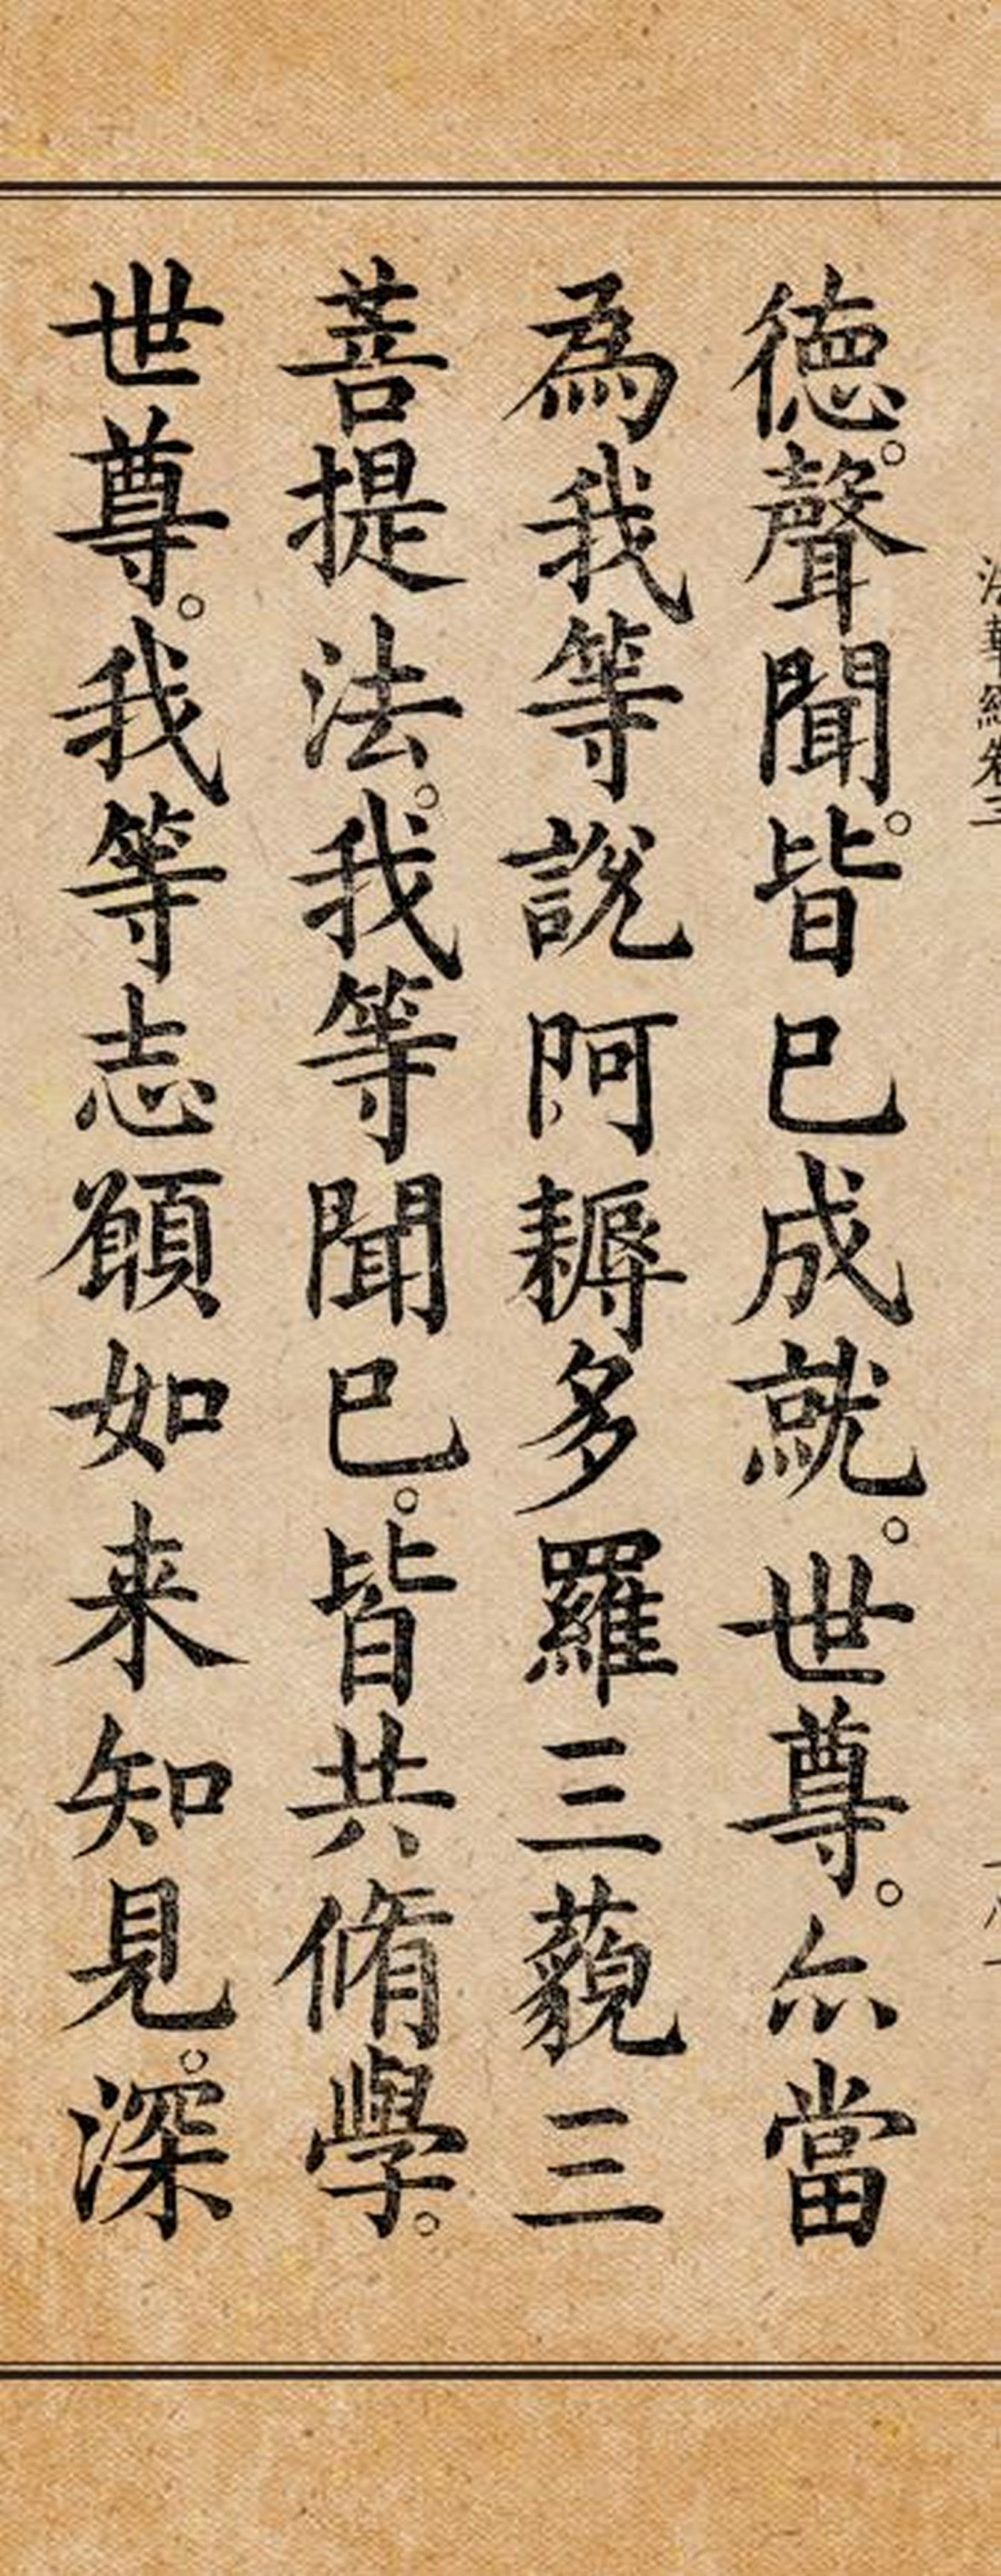 法華經卷三
德。聲聞。皆已成就。世尊。尒當
為我等說阿耨多羅三藐三
菩提法。我等聞已。皆共脩學。
世尊。我等志願如来知見。深